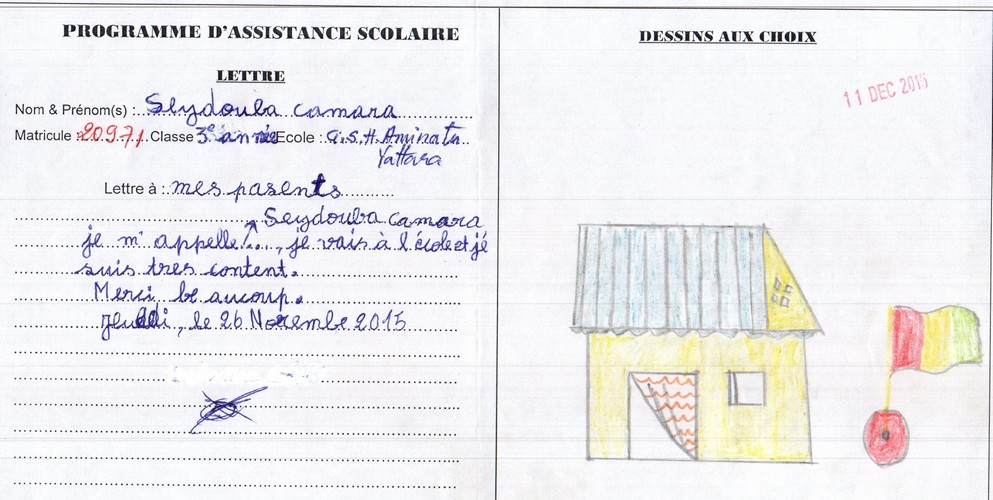 PROGRAMME D'ASSISTANCE SCOLAIRE
LETTRE
Nom & Prénom(s) : Seydouba camara
Matricule : 20971 Classe 3e année Ecole : G.S.H.Aminata
Yattara
Lettre à : mes parents
Seydouba camara
je m'appelle ..., je vais à l'école et jé
suis tres content.
Merci be aucoup.
jeudi, le 26 Novembre 2015
DESSINS AUX CHOIX
11 DEC 2015